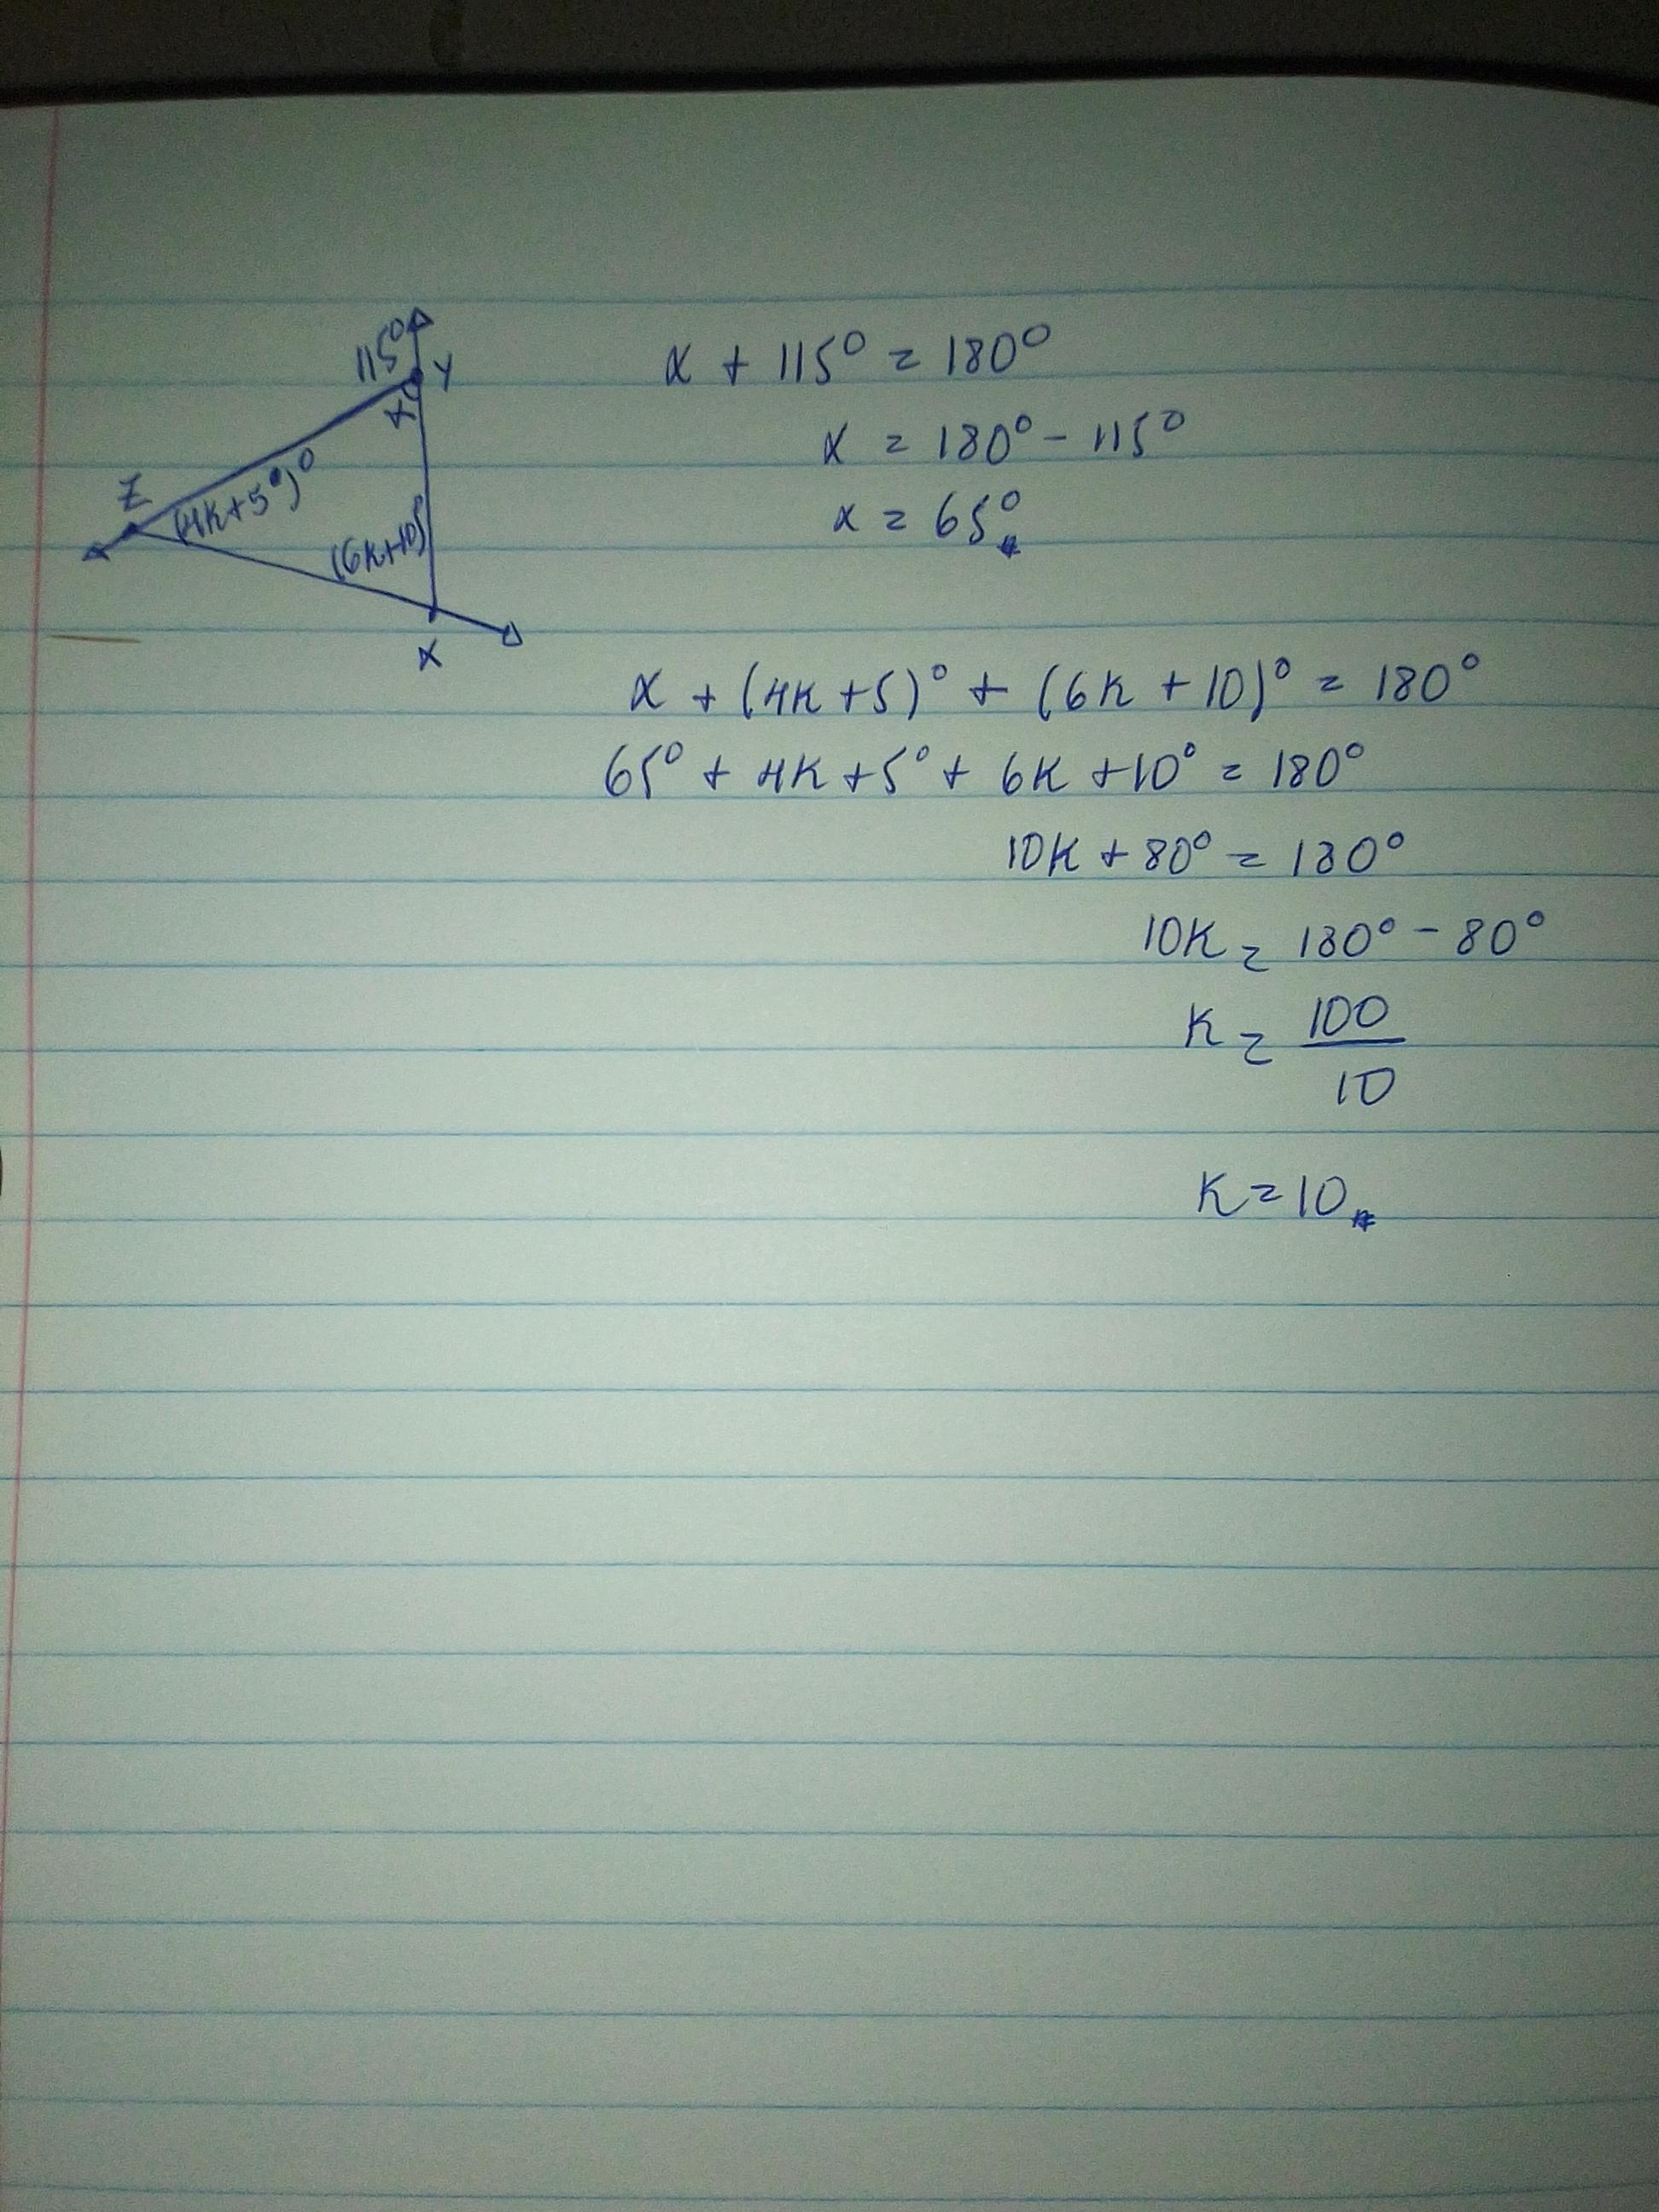 115°
Y
x
Z
(4K+5°)°
(6K+10)°
X
x + 115° = 180°
x = 180° - 115°
x = 65°
x + (4K+5)° + (6K+10)° = 180°
65° + 4K+5° + 6K+10° = 180°
10K + 80° = 180°
10K = 180° - 80°
K = 100
10
K = 10